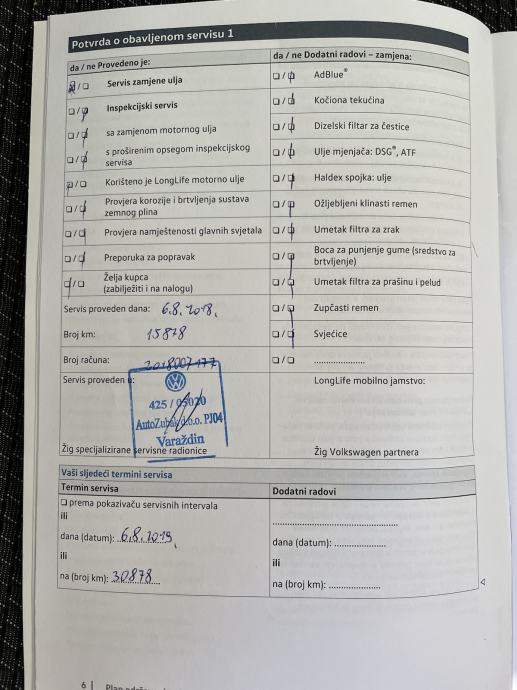 Potvrda o obavljenom servisu 1
da / ne Provedeno je:
☐/☐ Servis zamjene ulja
☐/☐ Inspekcijski servis
☐/☐ sa zamjenom motornog ulja
☐/☐ s proširenim opsegom inspekcijskog
servisa
☐/☐ Korišteno je LongLife motorno ulje
☐/☐ Provjera korozije i brtvljenja sustava
zemnog plina
☐/☐ Provjera namještenosti glavnih svjetala
☐/☐ Preporuka za popravak
☐/☐ Želja kupca
(zabilježiti i na nalogu)
Servis proveden dana: 6.8.2018.
Broj km: 15878
Broj računa: 2018007177
Servis proveden u:
425 / 05020
AutoZubak d.o.o. PJ04
Varaždin
Žig specijalizirane servisne radionice
da / ne Dodatni radovi – zamjena:
☐/☐ AdBlue®
☐/☐ Kočiona tekućina
☐/☐ Dizelski filtar za čestice
☐/☐ Ulje mjenjača: DSG®, ATF
☐/☐ Haldex spojka: ulje
☐/☐ Ožljebljeni klinasti remen
☐/☐ Umetak filtra za zrak
☐/☐ Boca za punjenje gume (sredstvo za
brtvljenje)
☐/☐ Umetak filtra za prašinu i pelud
☐/☐ Zupčasti remen
☐/☐ Svjećice
☐/☐ .....................
LongLife mobilno jamstvo:
Žig Volkswagen partnera
Vaši sljedeći termini servisa
Termin servisa
☐ prema pokazivaču servisnih intervala
ili
dana (datum): 6.8.2019.
ili
na (broj km): 30878
Dodatni radovi
.....................................................
dana (datum): .....................
ili
na (broj km): .....................
6 | Plan